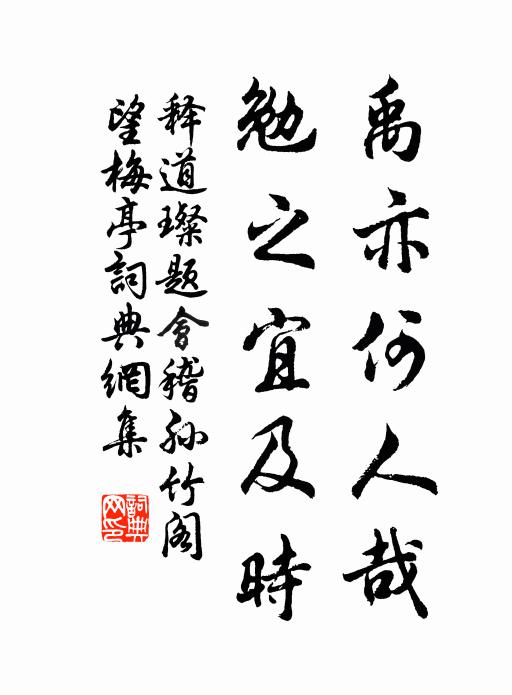 禹亦何人哉
勉之宜及時
释道璨题會稽孙竹阁
望梅亭詞典網集
詞典网印